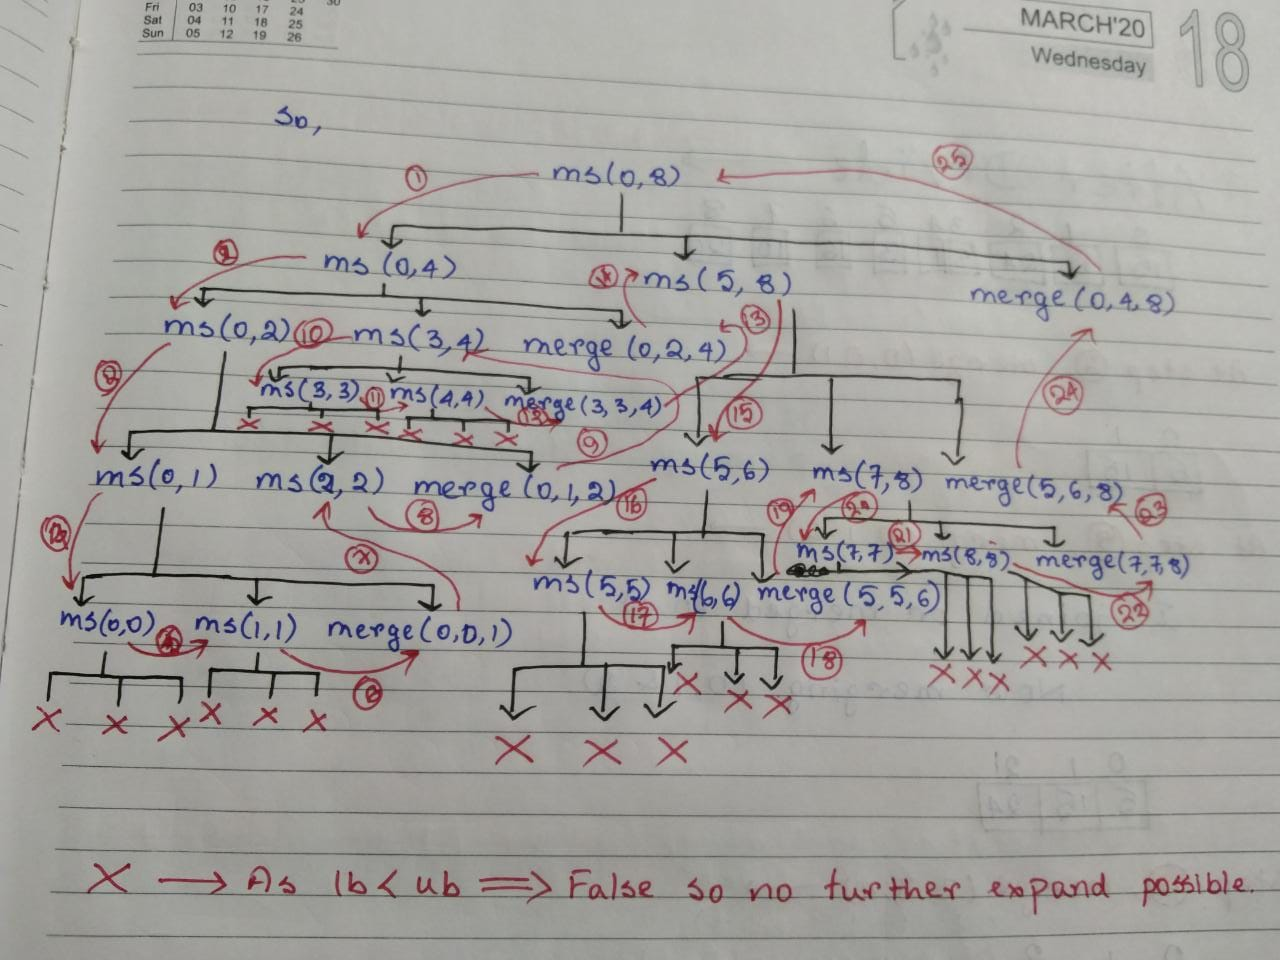 Fri 03 10 17 24
Sat 04 11 18 25
Sun 05 12 19 26
30
MARCH'20
Wednesday
18
So,
ms(0,8)
1
25
ms(0,4)
ms(5,8)
merge(0,4,8)
ms(0,2)
10
ms(3,4)
merge(0,2,4)
13
ms(3,3)
11
ms(4,4)
merge(3,3,4)
15
24
9
ms(0,1)
ms(2,2)
merge(0,1,2)
ms(5,6)
ms(7,8)
merge(5,6,8)
8
16
19
23
21
ms(7,7)
ms(8,8)
merge(7,7,8)
ms(5,5)
ms(6,6)
merge(5,5,6)
22
ms(0,0)
ms(1,1)
merge(0,0,1)
17
18
X X X X X X
X X X
X X X
X X X
X X X
X → As lb < ub ⟹ False so no further expand possible.